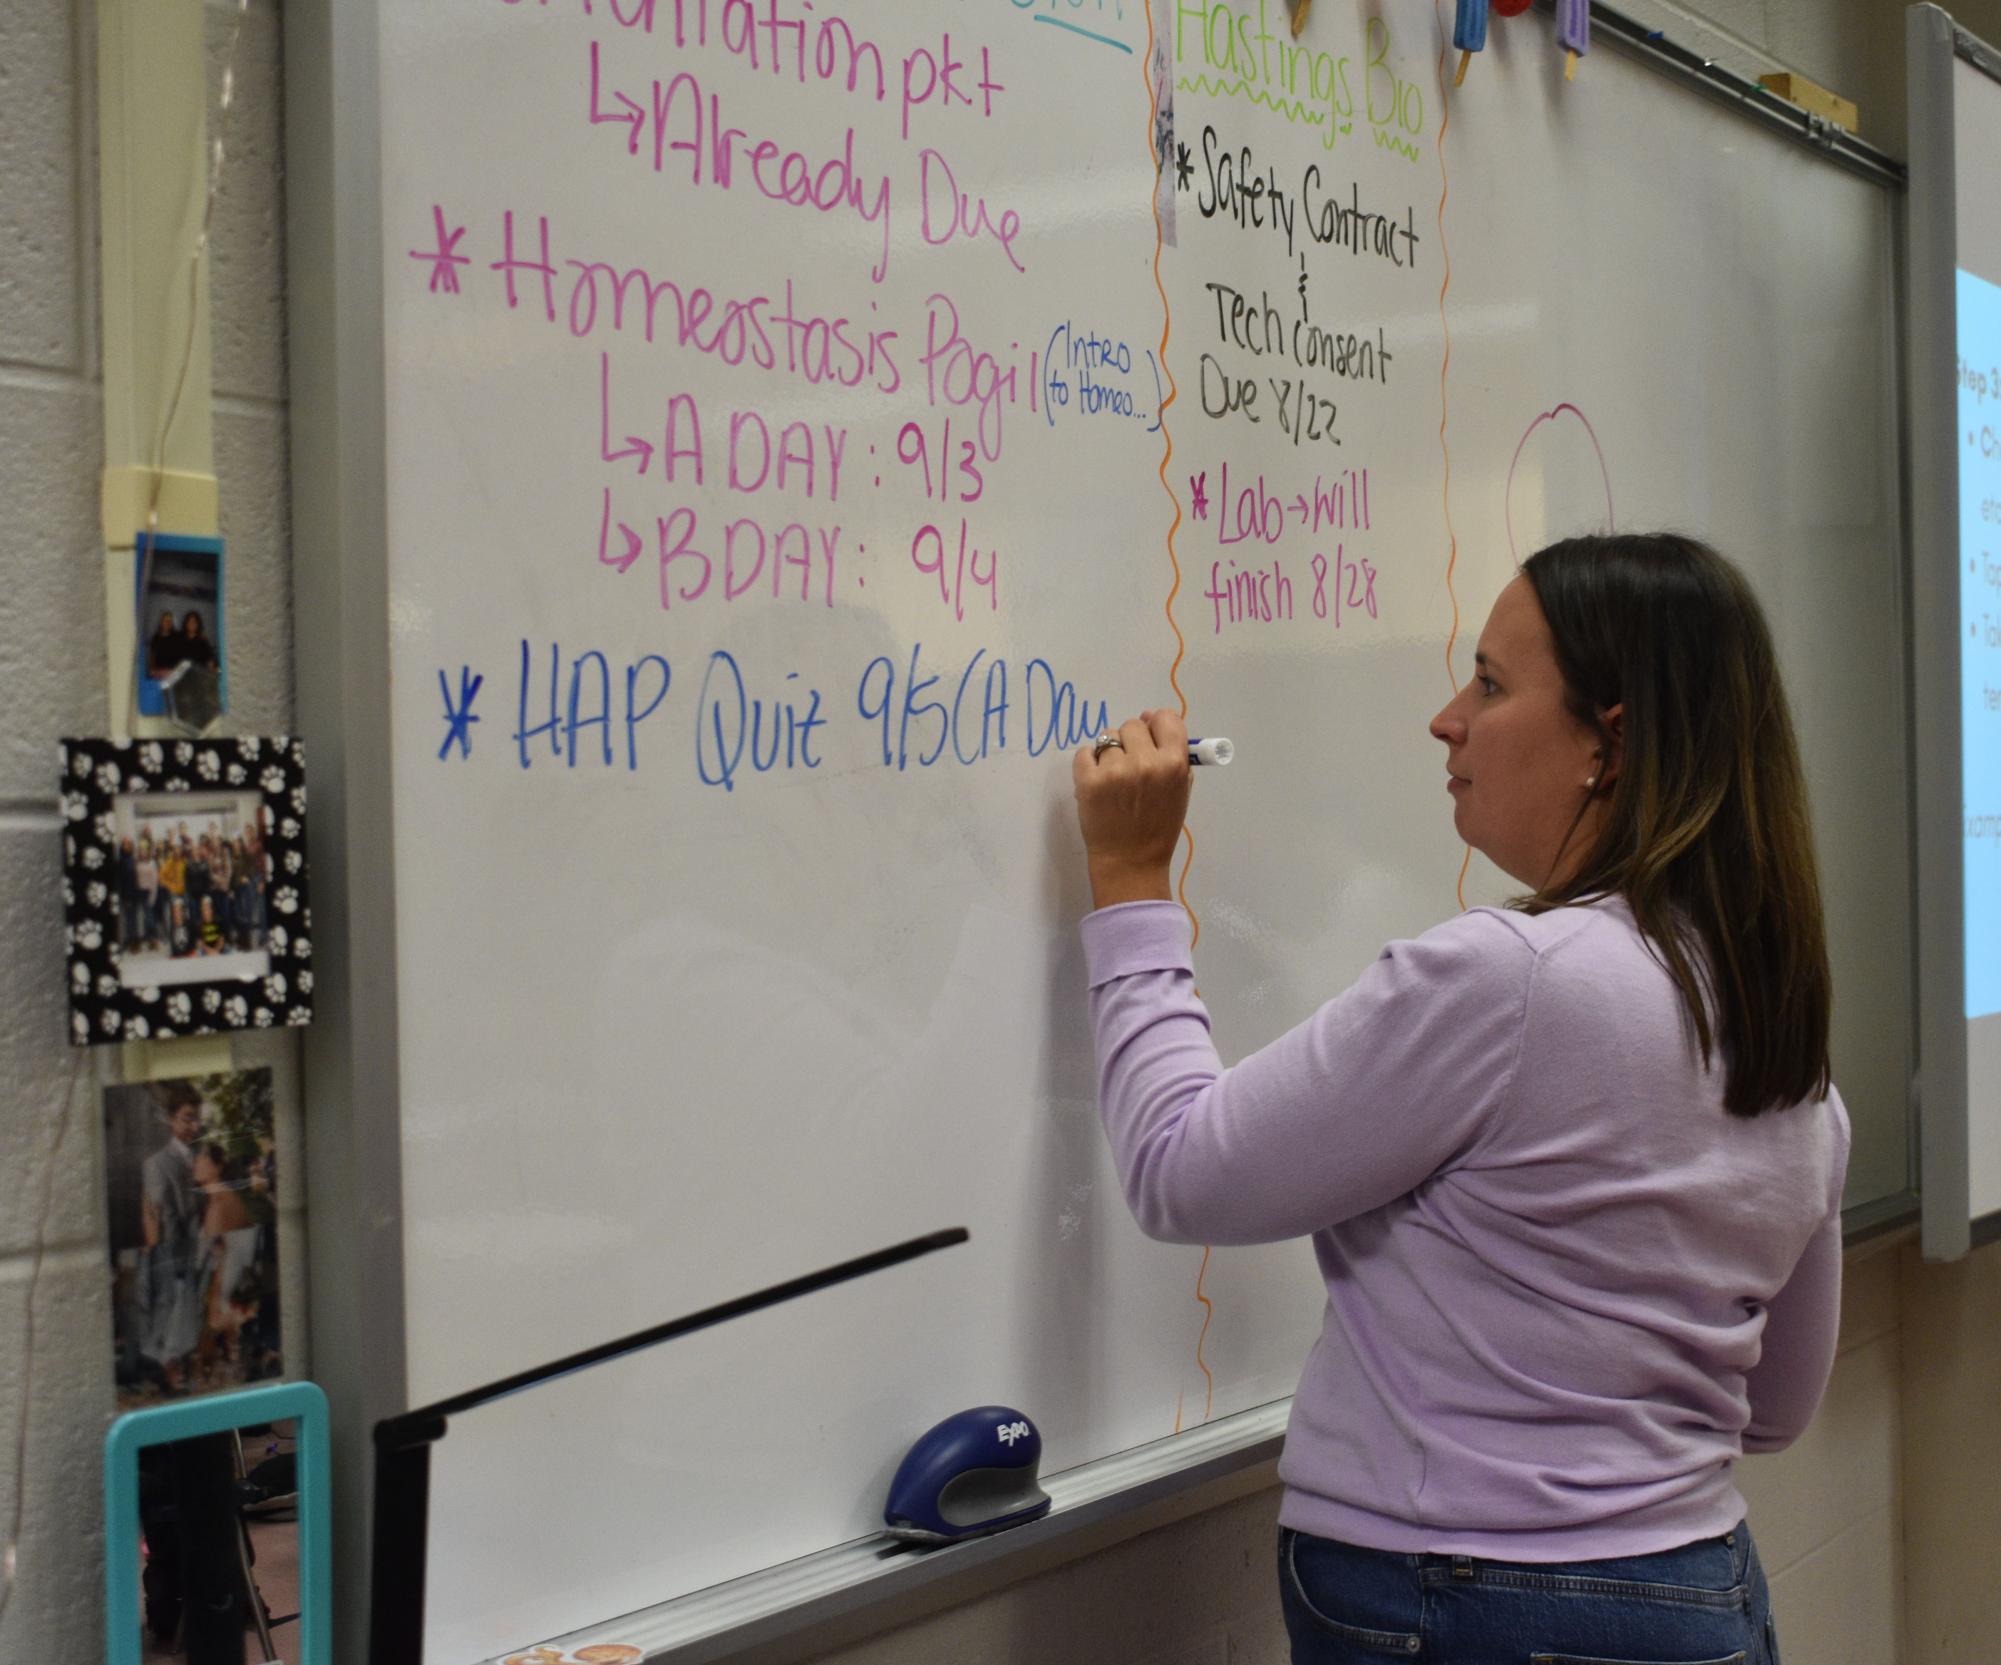 pkt
↳Already Due
*Homeostasis Pogil (Intro
to Homeo...)
↳A DAY: 9/3
↳B DAY: 9/4
*HAP Quiz 9/5 (A Day
Hastings Bio
*Safety Contract
&
Tech consent
Due 8/22
*Lab→will
finish 8/28
EXPO
Step 3: